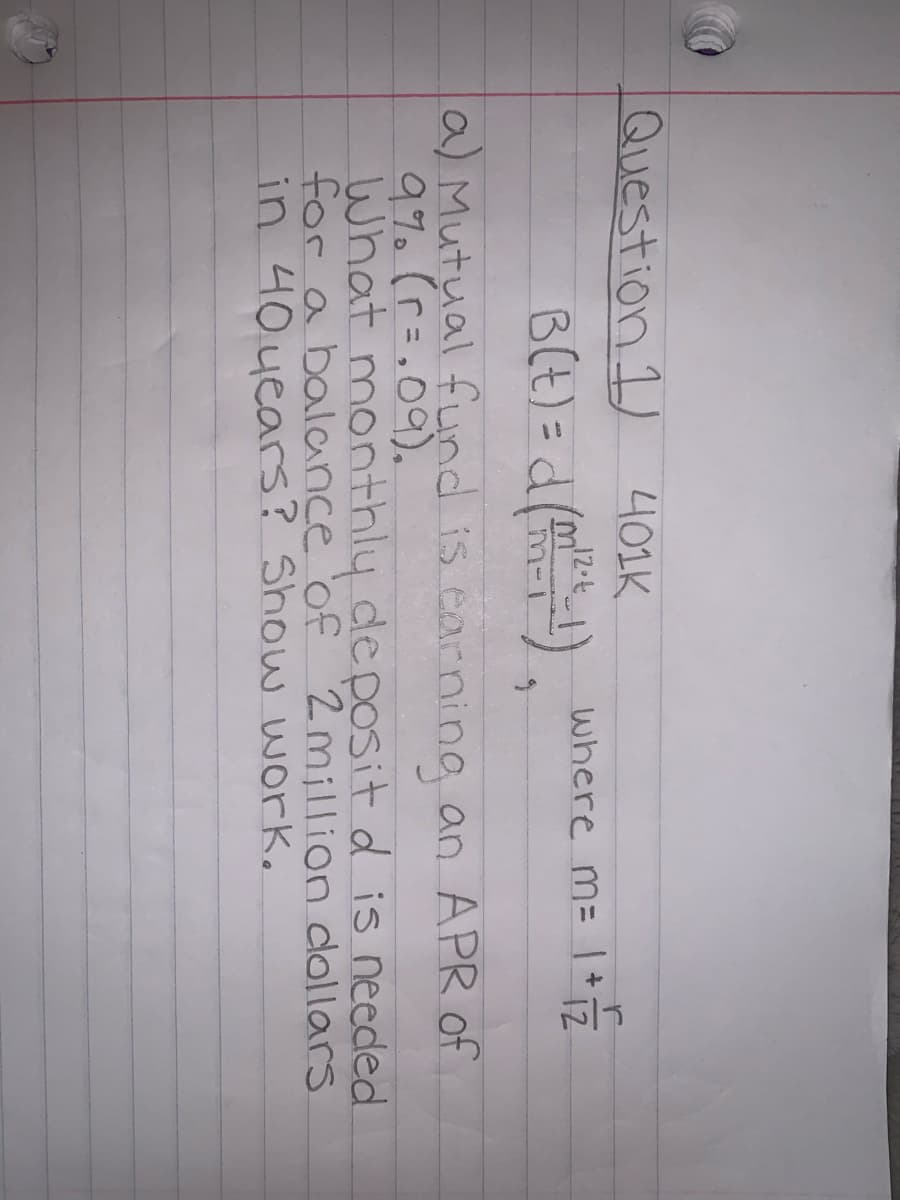 Question 1) 401K
B(t) = d (m^12·t - 1 / m - 1), where m = 1 + r/12
a) Mutual fund is earning an APR of
9% (r = .09).
What monthly deposit d is needed
for a balance of 2 million dollars
in 40 years? Show work.